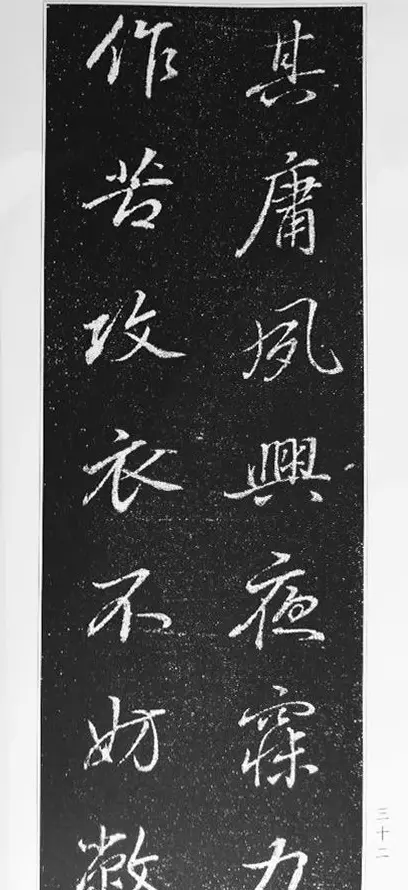 其庸夙興夜寐力
作苦攻衣不妨敝
三十二